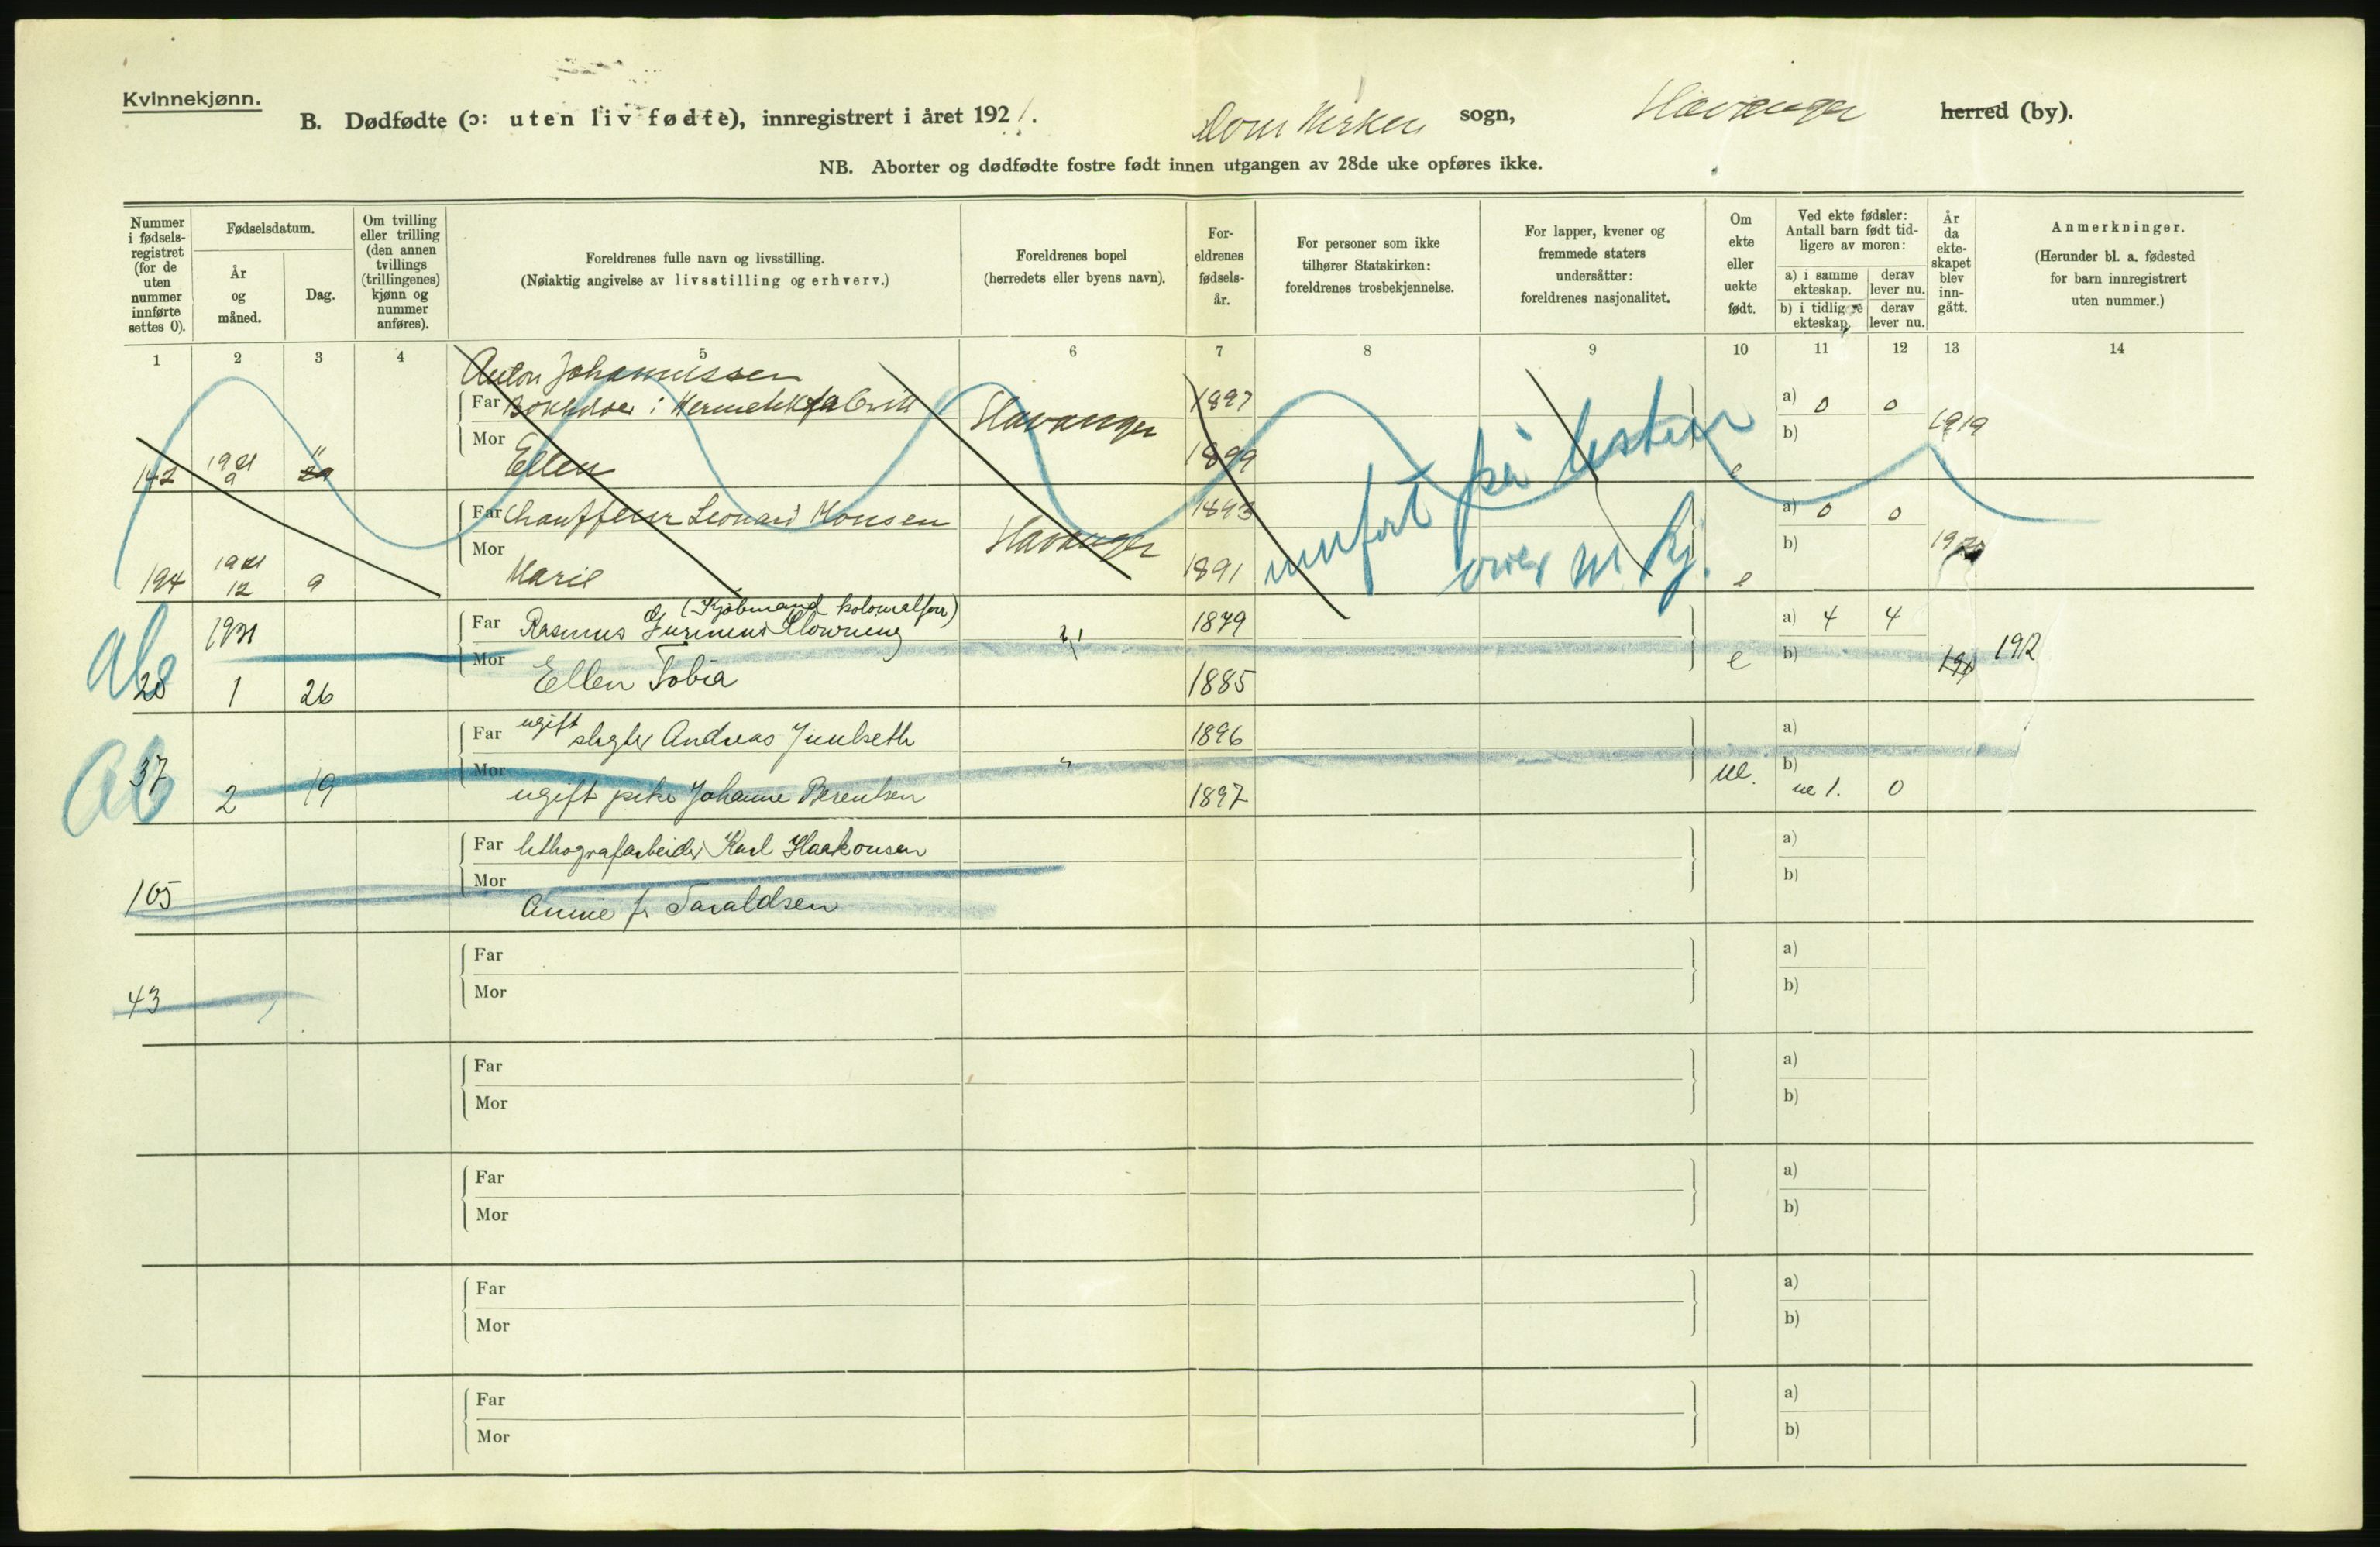 Kvinnekjønn.
B. Dødfødte (ɔ: uten liv fødte), innregistrert i året 1921. Domkirken sogn, Stavanger herred (by).
NB. Aborter og dødfødte fostre født innen utgangen av 28de uke opføres ikke.
Nummer i fødsels-registret (for de uten nummer innførte settes 0).
Fødselsdatum.
År og måned.
Dag.
Om tvilling eller trilling (den annen tvillings (trillingenes) kjønn og nummer anføres).
Foreldrenes fulle navn og livsstilling.
(Nøiaktig angivelse av livsstilling og erhverv.)
Foreldrenes bopel
(herredets eller byens navn).
For-eldrenes fødsels-år.
For personer som ikke tilhører Statskirken: foreldrenes trosbekjennelse.
For lapper, kvener og fremmede staters undersåtter: foreldrenes nasjonalitet.
Om ekte eller uekte født.
Ved ekte fødsler: Antall barn født tid-ligere av moren:
a) i samme ekteskap. derav lever nu.
b) i tidligere ekteskap. derav lever nu.
År da ekte-skapet blev inn-gått.
Anmerkninger.
(Herunder bl. a. fødested for barn innregistrert uten nummer.)
1 2 3 4 5 6 7 8 9 10 11 12 13 14
Anton Johannissen
Far i Hermetikkfabrikk Stavanger 1897 a) 0 0 1919
Mor Ellen 1899 b)
142 1921 9 e
Far Chauffeur Leonard Monsen Stavanger 1893 a) 0 0
Mor Marie 1891 b)
194 1921 12 9 e
innført på listen
over m. kj.
(Kjøbmand kolonialforr)
Ab 1921 Far Rasmus 1879 a) 4 4
28 1 26 Mor Ellen Tobia 1885 e b) 1912
Ab Far ugift slagter Andreas Juulseth 1896 a)
37 2 19 Mor ugift pike Johanne Berentsen " 1897 ue. b) ue 1. 0
Far lithografarbeider Karl Haakonsen a)
105 Mor Annie f. Taraldsen b)
Far a)
43 Mor b)
Far a)
Mor b)
Far a)
Mor b)
Far a)
Mor b)
Far a)
Mor b)